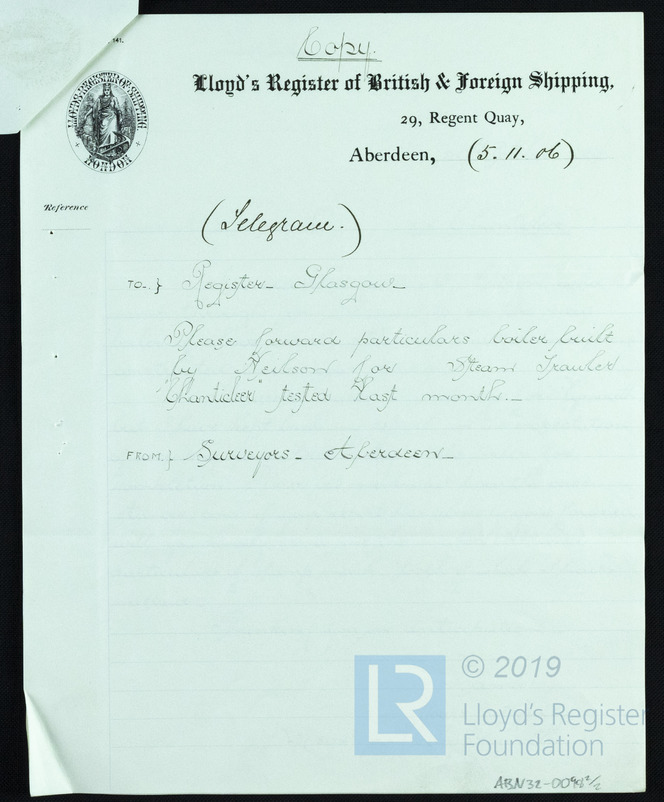 141.
Copy.
Lloyd's Register of British & Foreign Shipping,
29, Regent Quay,
Aberdeen, (5.11.06)
LLOYD'S REGISTER OF SHIPPING
LONDON
Reference
(Telegram.)
TO.} Register - Glasgow
Please forward particulars boiler built
by Neilson for Steam Trawler
"Chanticleer" tested last month. -
FROM.} Surveyors - Aberdeen -
LR
© 2019
Lloyd's Register
Foundation